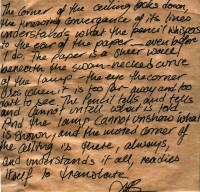 The corner of the ceiling looks down,
the knowing convergence of its lines
understands what the pencil whispers
to the ear of the paper — even before
I do. The paper is a sheer wall
beneath the swan-necked curve
of the lamp — the eye the corner
uses when it is too far away and too
to see. The Pencil tells and tells
and cannot untell what is told
And the lamp cannot unshow what
is shown, and the muted corner of
the ceiling is there, always,
and understands it all, readies
itself to translate.